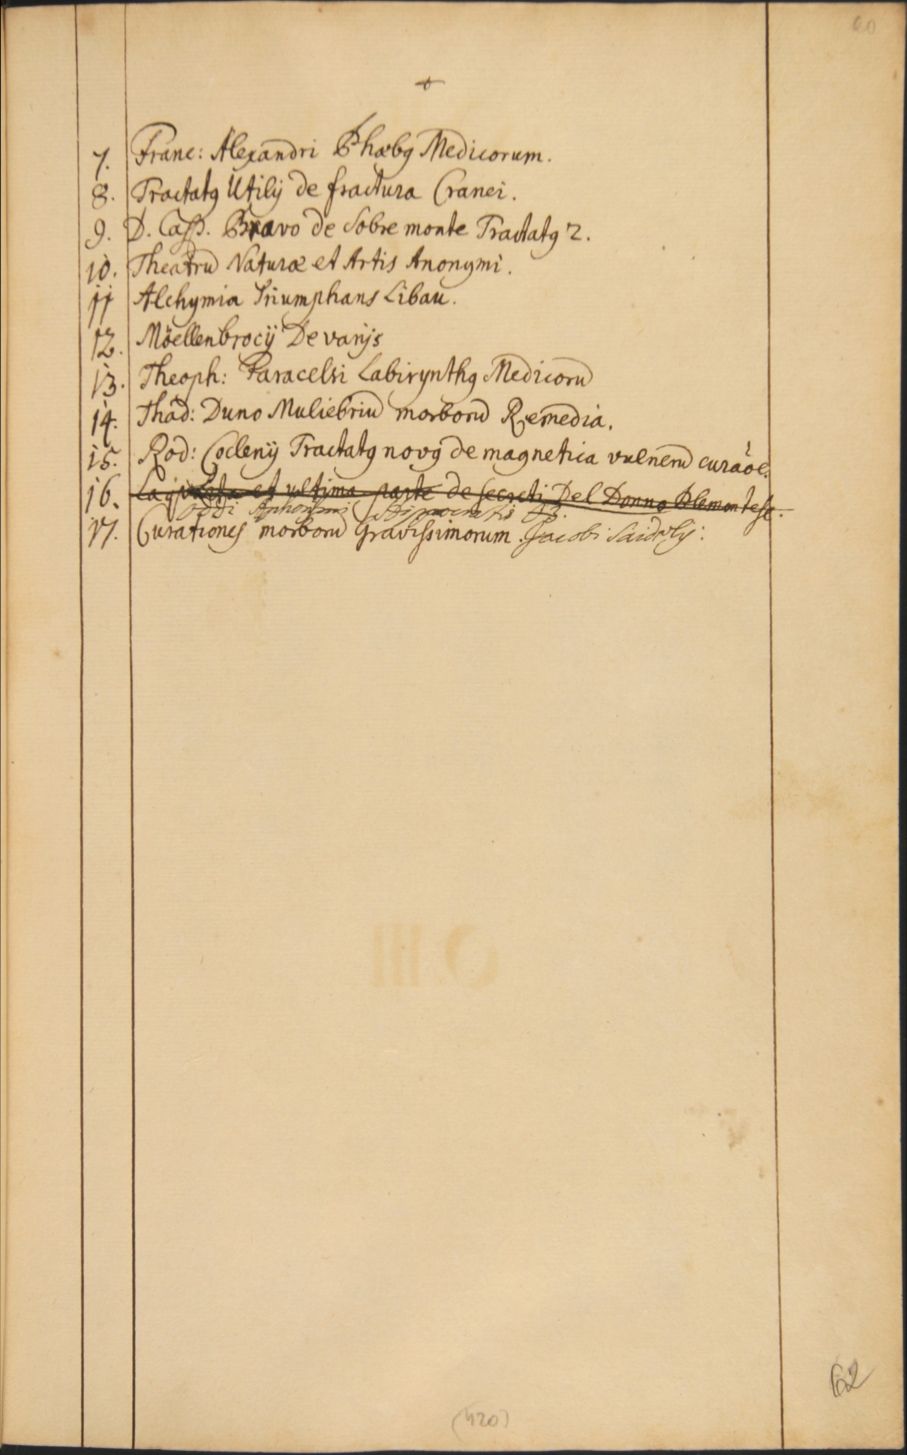 60
7. Franc: Alexandri Phœbꝯ Medicorum.
8. Tractatꝯ Utilis de fractura Cranei.
9. D. Casp. Bravo de Sobre monte Tractatꝯ 2.
10. Theatrū Naturæ et Artis Anonymi.
11 Alchymia Triumphans Libau.
12. Möellenbrocij De varijs
13. Theoph: Paracelsi Labirynthꝯ Medicorū
14. Thad: Duno Muliebriū morborū Remedia.
15. Rod: Goclenij Tractatꝯ novꝯ de magnetica vulnerū curaōe.
16. La quinta et ultima parte de secreti Del Donno Piemontese.
Oddi
17. Curationes morborū Gravissimorum. Jacobi
62
(120)